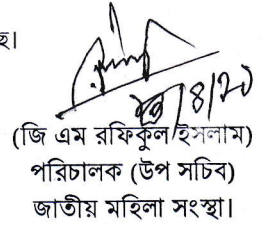 হ।
(জি এম রফিকুল ইসলাম)
পরিচালক (উপ সচিব)
জাতীয় মহিলা সংস্থা।